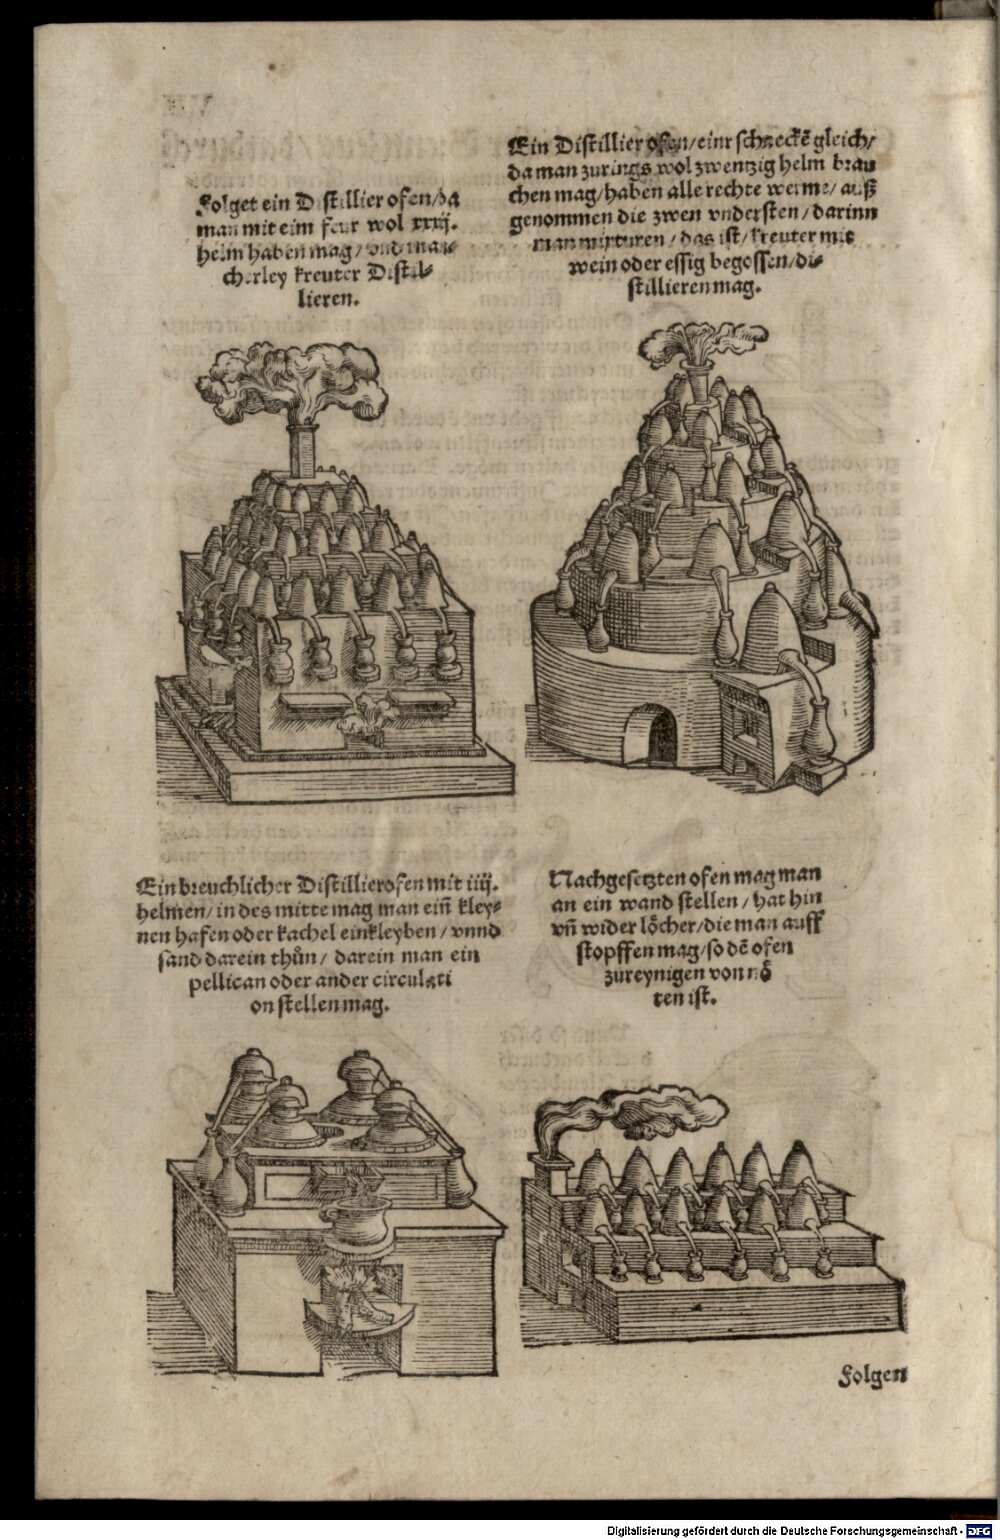 Folget ein Distillier ofen/da
man mit eim feur wol xxxij.
helm haben mag/vnd man-
cherley kreuter Distil-
lieren.
Ein Distillier ofen/einr schneckē gleich/
da man zurings wol zwentzig helm brau
chen mag/haben alle rechte werme/auß
genommen die zwen vndersten/darinn
man mixturen/das ist/kreuter mit
wein oder essig begossen/di-
stillieren mag.
Ein breuchlicher Distillierofen mit iiij.
helmen/in des mitte mag man ein̄ kley-
nen hafen oder kachel einkleyben/vnnd
sand darein thůn/darein man ein
pellican oder ander circulati
on stellen mag.
Nachgesetzten ofen mag man
an ein wand stellen/hat hin
vn̄ wider lo̊cher/die man auff
stopffen mag/so dē ofen
zureynigen von no̊
ten ist.
Folgen
Digitalisierung gefördert durch die Deutsche Forschungsgemeinschaft - DFG